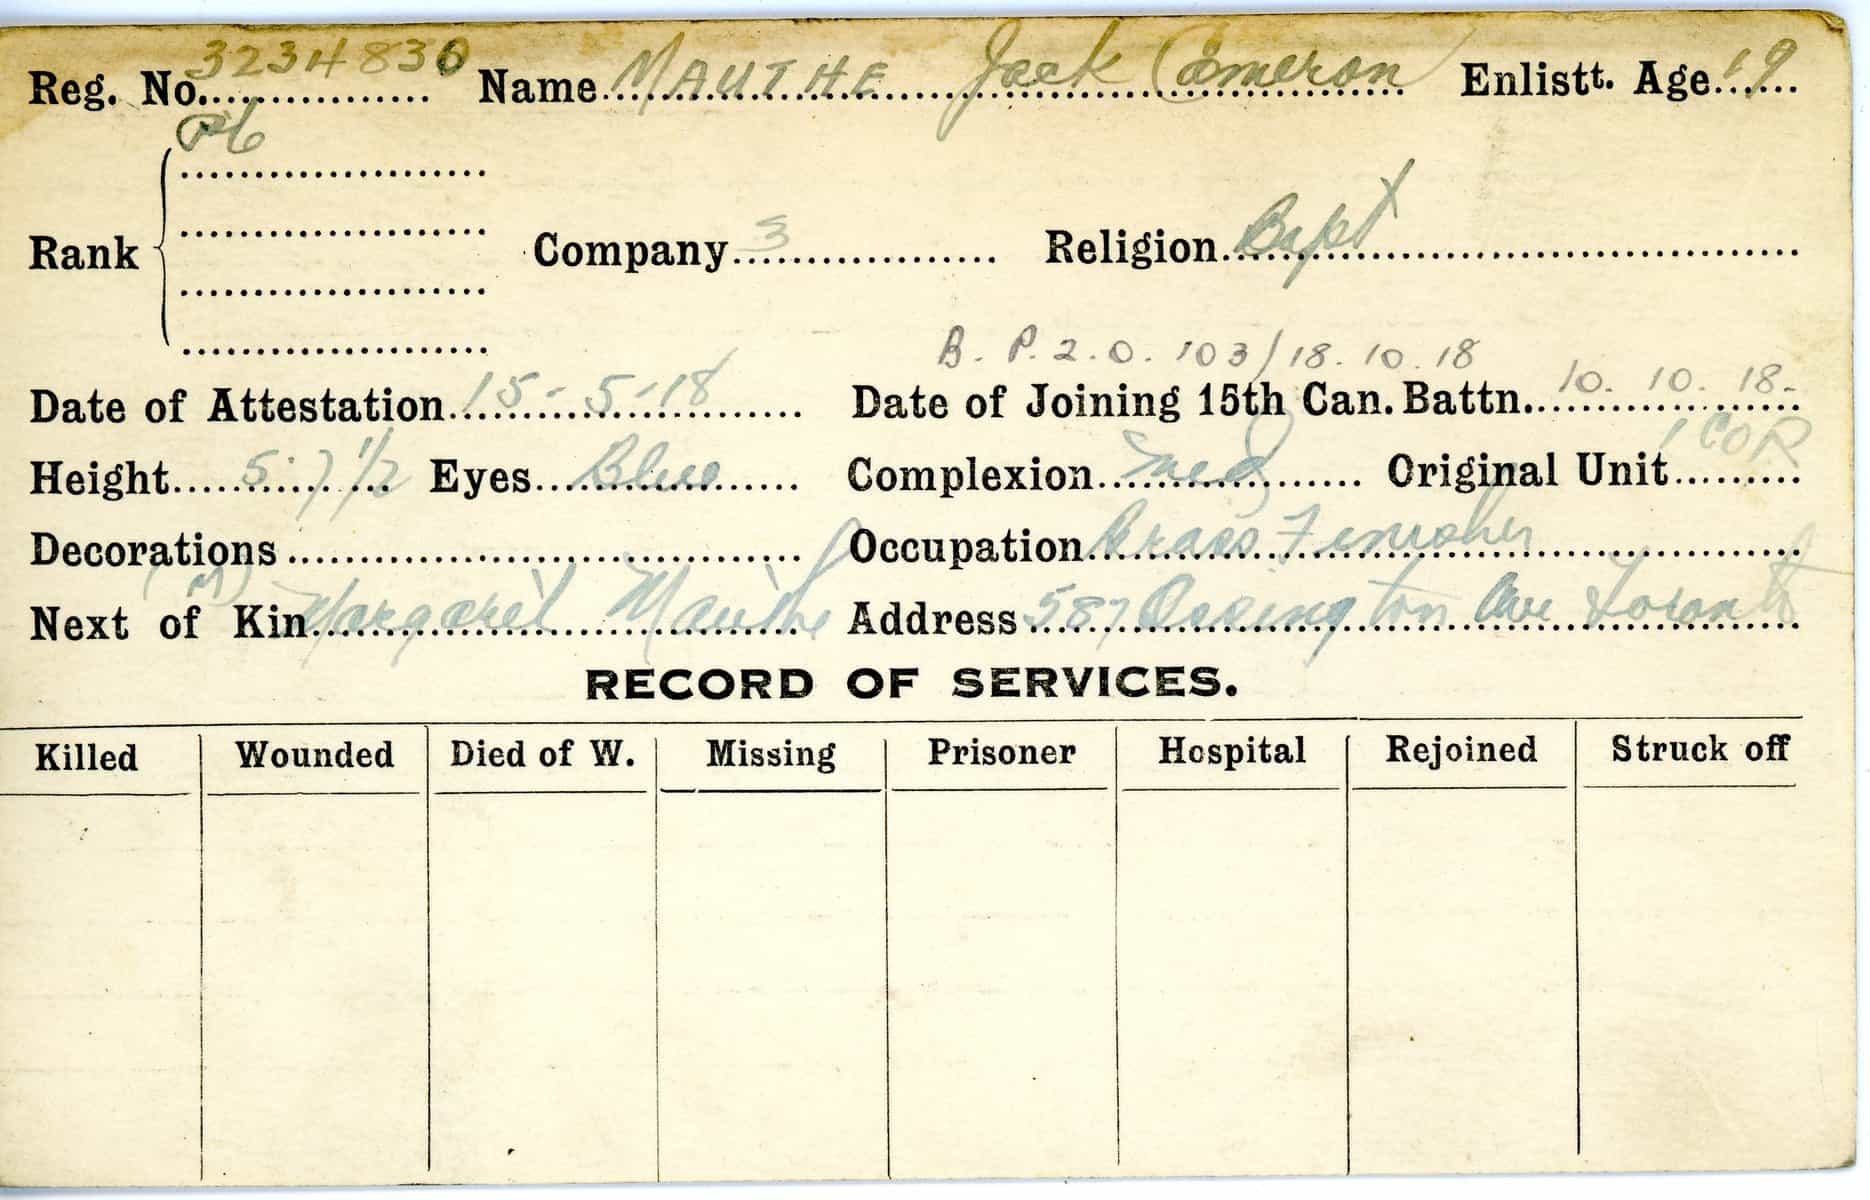 Reg. No. 3234830 Name MAUTHE Jack Cameron Enlistt. Age 19
Rank Pte
Company 3 Religion Bapt
B. P. 2. O. 103/18.10.18
Date of Attestation 15-5-18 Date of Joining 15th Can. Battn. 10. 10. 18-
Height 5.7 1/2 Eyes Blue Complexion Med Original Unit 1 COR
Decorations Occupation Brass Finisher
(M)
Next of Kin Margaret Mauthe Address 587 Ossington Ave Toronto
RECORD OF SERVICES.
Killed Wounded Died of W. Missing Prisoner Hospital Rejoined Struck off